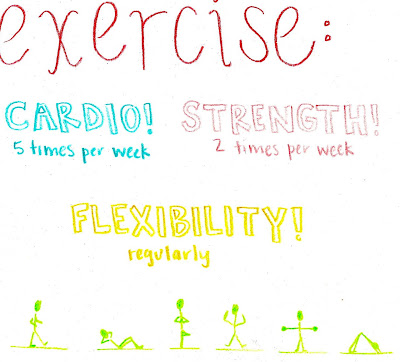 exercise:
CARDIO! STRENGTH!
5 times per week 2 times per week
FLEXIBILITY!
regularly